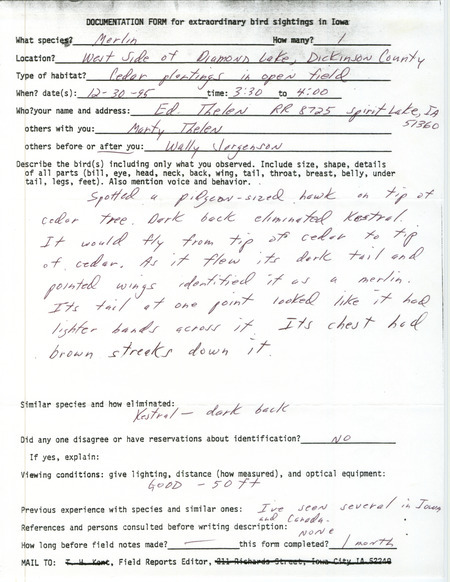 DOCUMENTATION FORM for extraordinary bird sightings in Iowa
What species? Merlin How many? 1
Location? West Side of Diamond Lake, Dickinson County
Type of habitat? Cedar plantings in open field
When? date(s): 12-30-95 time: 3:30 to 4:00
Who? your name and address: Ed Thelen RR 8725 Spirit Lake, IA
51360
others with you: Marty Thelen
others before or after you: Wally Jorgenson
Describe the bird(s) including only what you observed. Include size, shape, details
of all parts (bill, eye, head, neck, back, wing, tail, throat, breast, belly, under
tail, legs, feet). Also mention voice and behavior.
Spotted a pidgeon-sized hawk on tip of
cedar tree. Dark back eliminated Kestral.
It would fly from tip of cedar to tip
of cedar. As it flew its dark tail and
pointed wings identified it as a merlin.
Its tail at one point looked like it had
lighter bands across it. Its chest had
brown streaks down it.
Similar species and how eliminated:
Kestral - dark back
Did any one disagree or have reservations about identification? NO
If yes, explain:
Viewing conditions: give lighting, distance (how measured), and optical equipment:
GOOD - 50 ft
Previous experience with species and similar ones: I've seen several in Iowa
and Canada.
References and persons consulted before writing description: none
How long before field notes made? — this form completed? 1 month
MAIL TO: T. H. Kent, Field Reports Editor, 211 Richards Street, Iowa City IA 52240